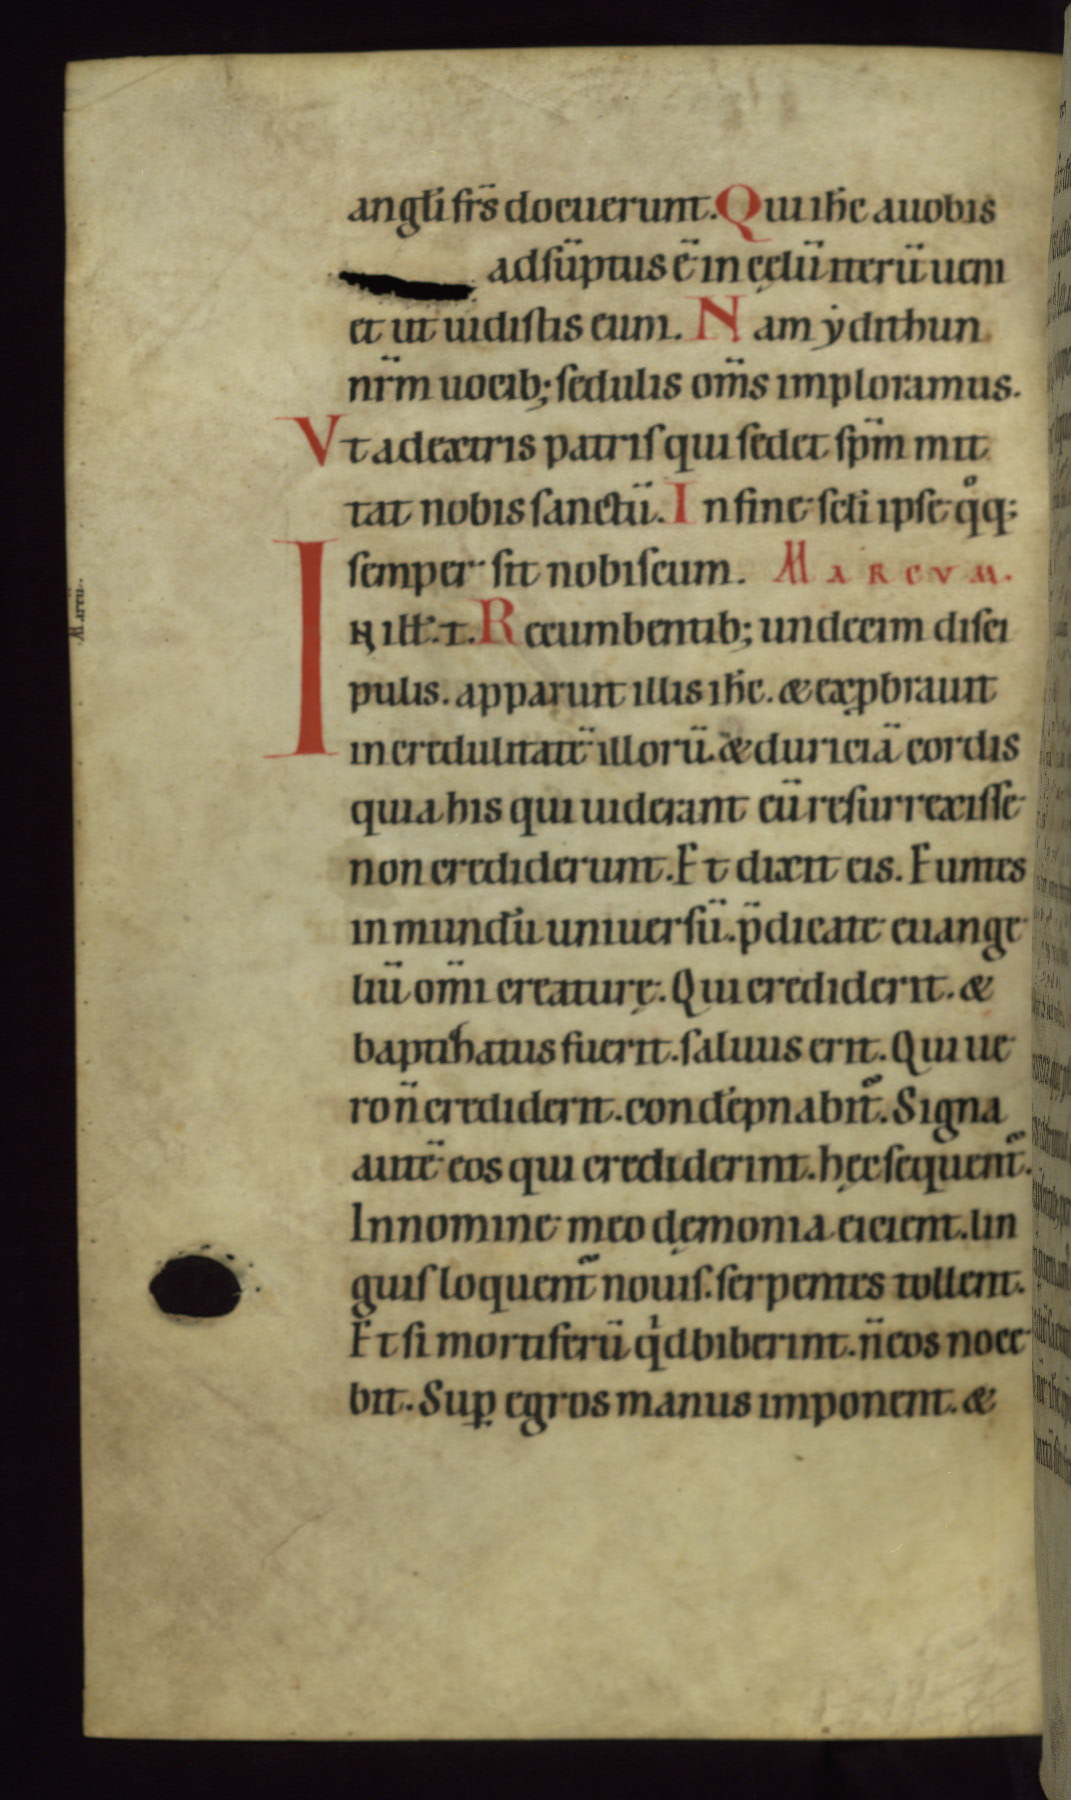 angłi frs̄ docuerunt. Qui ih̄c auobis
adsūptus ē in cęlū iterū ueni
et ut uidistis eum. N am ydithun
nr̄m uocib; sedulis om̄s imploramus.
Vt adextris patris qui sedet sp̄m mit
tat nobis sanctū. I n fine scłi ipse q̊q;
semper sit nobiscum. MARCVM.
Marcū.
IN ilł. t. R ecumbentib; undecim disci
pulis. apparuit illis ih̄c. & exꝓbrauit
incredulitatē illorū. & duriciā cordis
quia his qui uiderant eū resurrexisse
non crediderunt. Et dixit eis. Euntes
in mundū uniuersū. p̄dicate euange
liū om̄i creaturę. Qui crediderit. &
baptihatus fuerit. saluus erit. Qui ue
ro n̄ crediderit. condēpnabit̃. Signa
autē eos qui crediderint. hęc sequent̃.
In nomine meo dęmonia eicient. lin
guis loquent̃ nouis. serpentes tollent.
Et si mortiferū qd̍ biberint. n̄ eos noce
bit. Suꝑ egros manus imponent. &